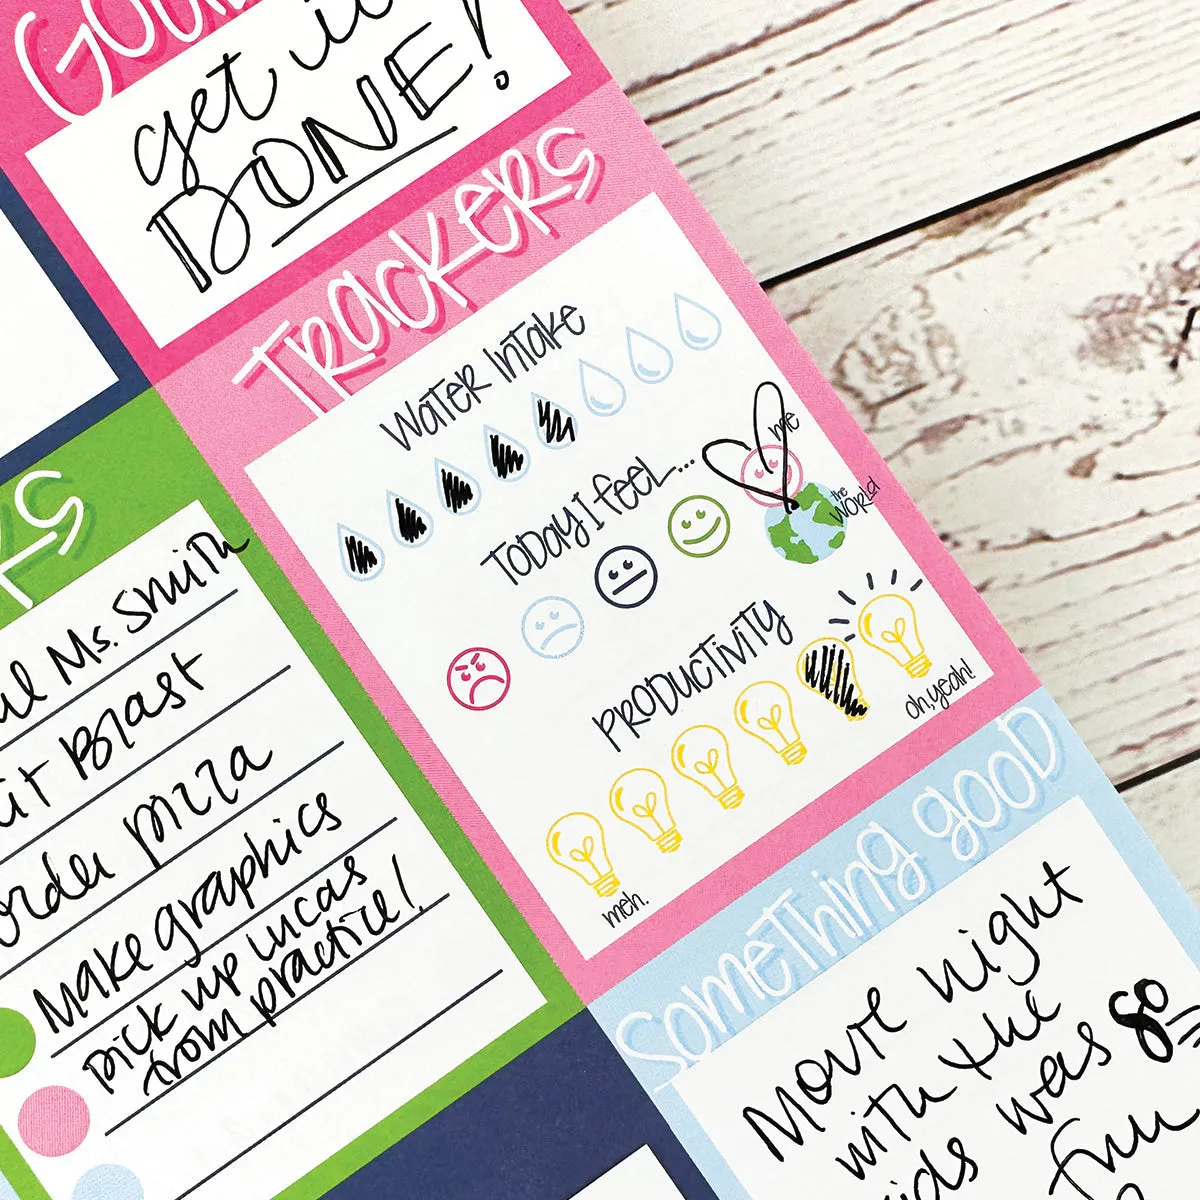 get it
DONE!
TRACKERS
WATER INTAKE
TODAY I FEEL...
me
the WORLD
PRODUCTIVITY
meh.
oh, yeah!
Ms. Smith
Blast
order pizza
Make graphics
pick up Lucas
from practice!
SOMETHING GOOD
Movie night
with the
kids was so
fun